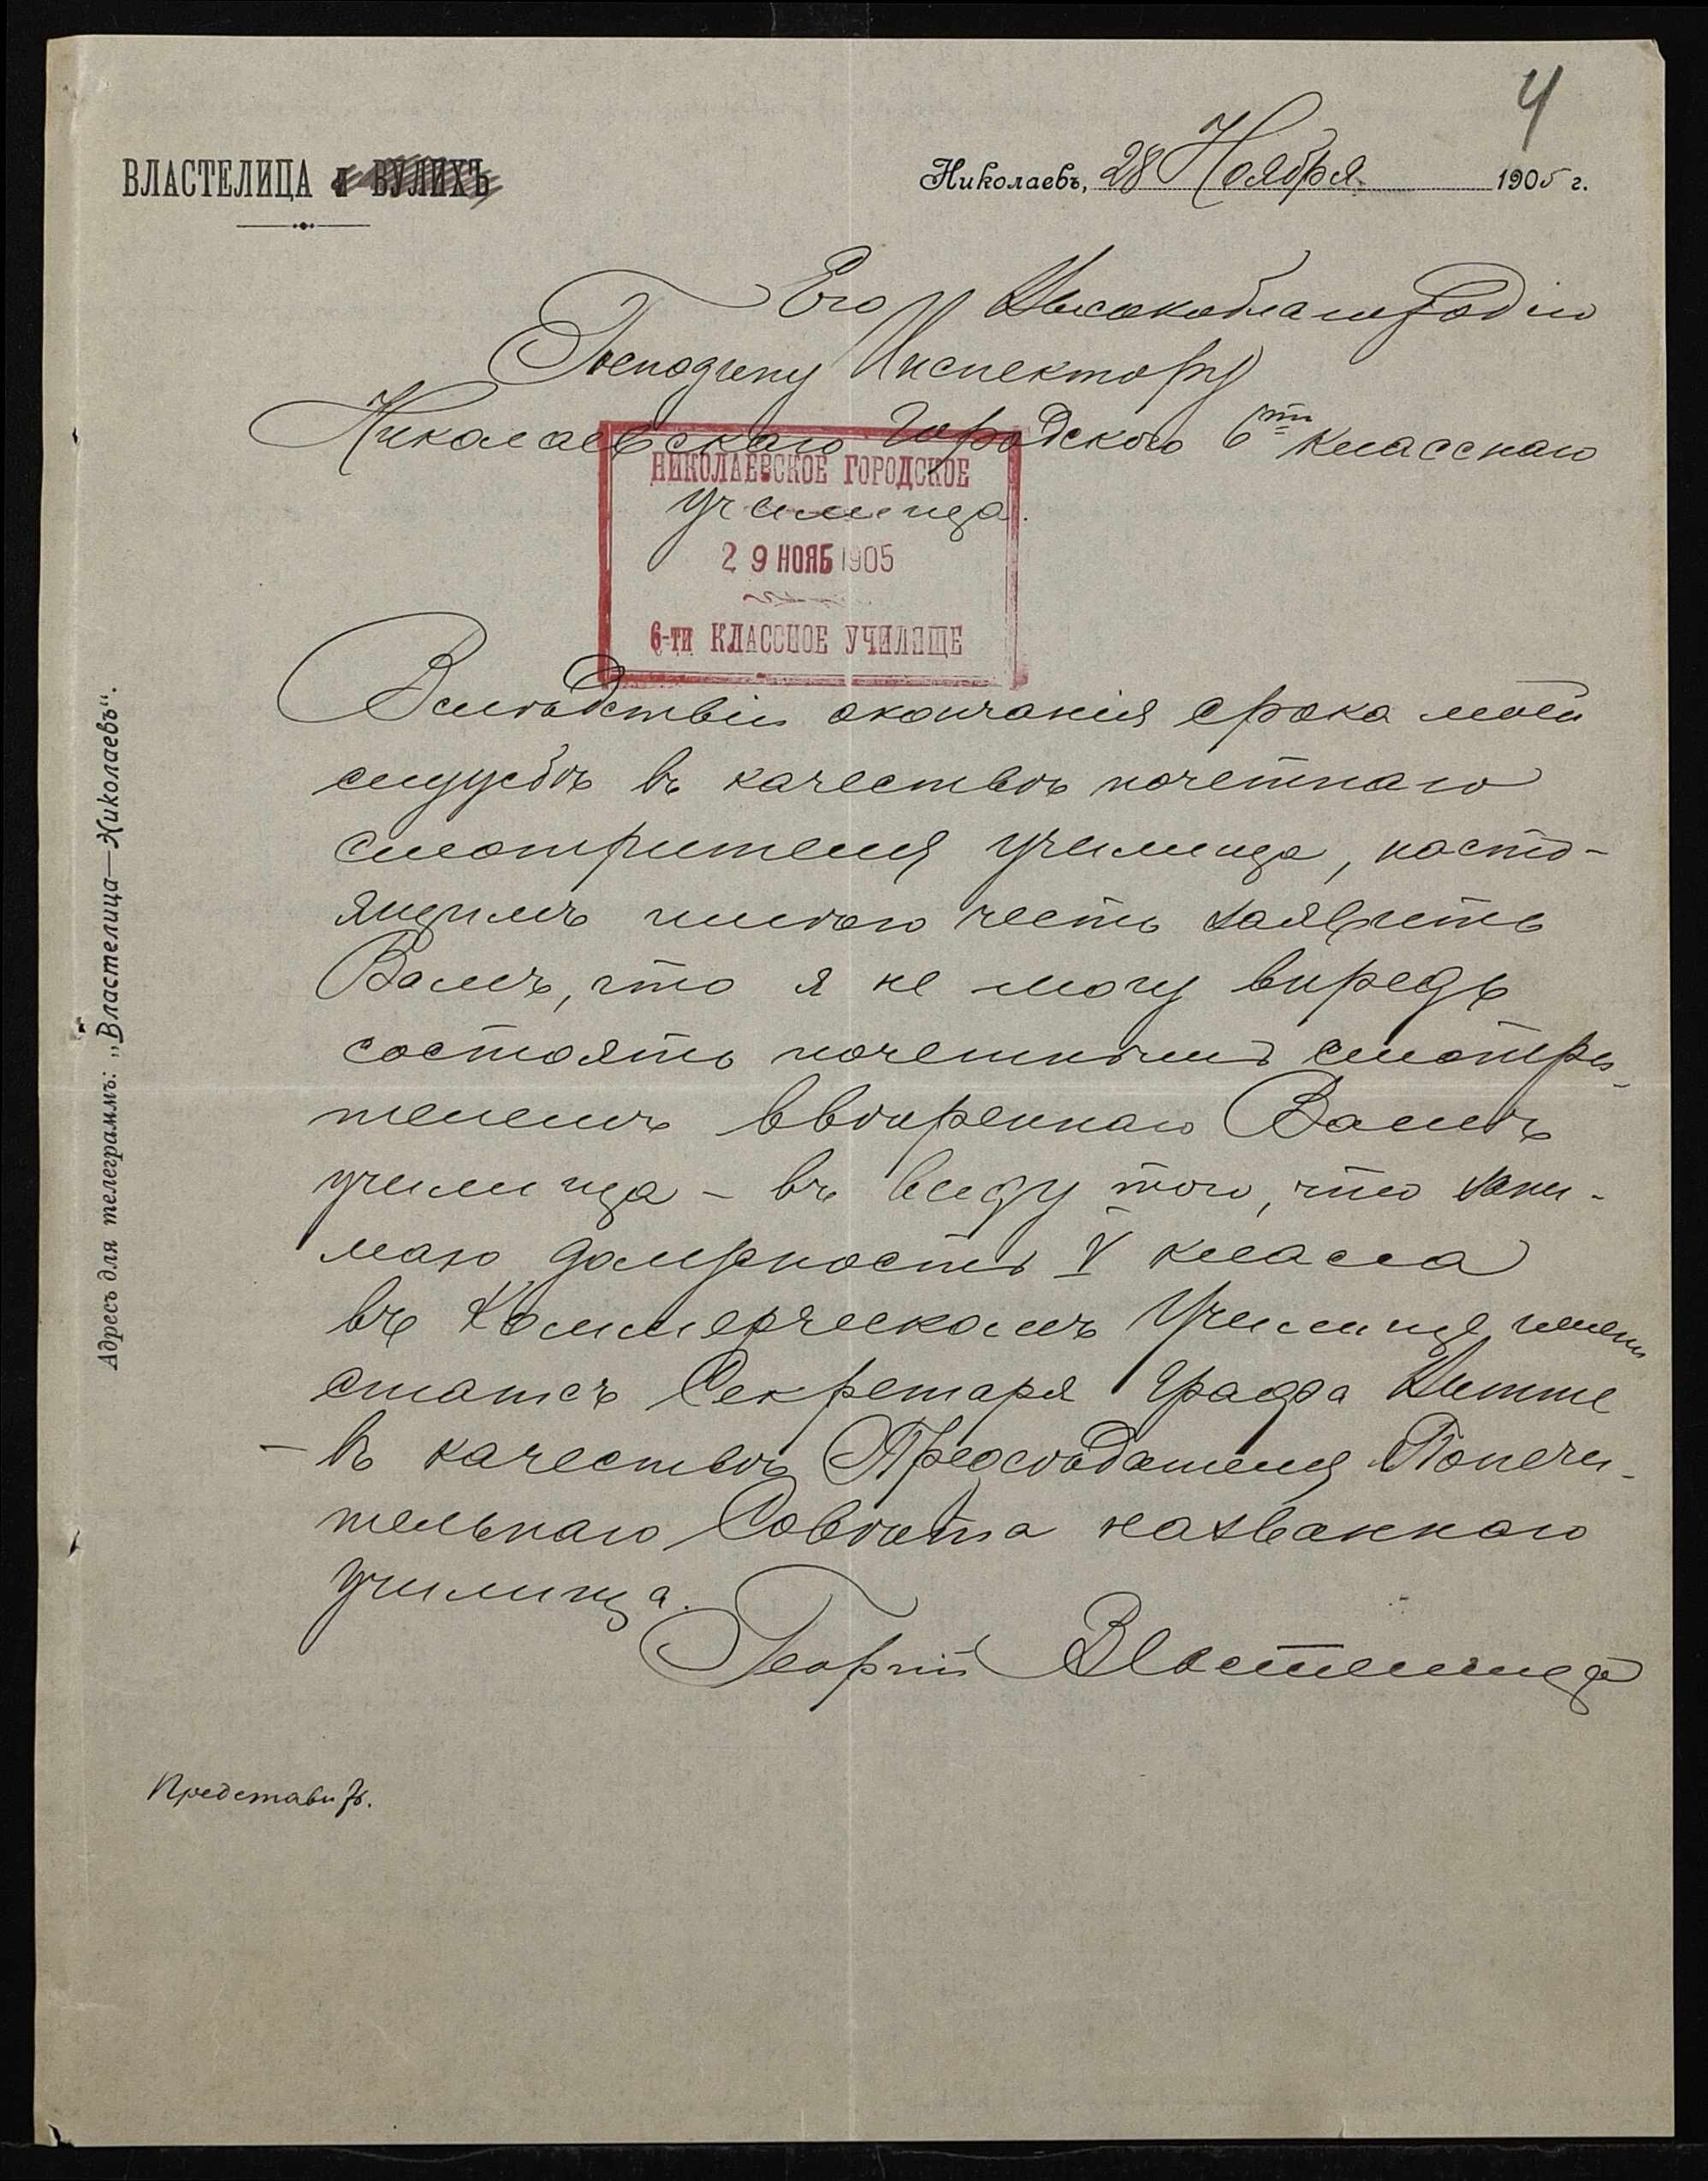 4
ВЛАСТЕЛИЦА и ВУЛИХЪ
Николаевъ, 28 Ноября 1905 г.
Его Высокоблагородію
Господину Инспектору
Николаевскаго Городского 6ти класснаго
НИКОЛАЕВСКОЕ ГОРОДСКОЕ
училища.
29 НОЯБ 1905
6-ти КЛАССНОЕ УЧИЛИЩЕ
Вслѣдствіи окончанія срока моей
службѣ въ качествѣ почетнаго
смотрителя училища, насто-
ящимъ имѣю честь заявить
Вамъ, что я не могу впредь
состоять почетнымъ смотри-
телемъ ввѣреннаго Вамъ
училища - въ виду того, что зани-
маю должность V класса
въ Коммерческомъ Училище имени
статсъ Секретаря Графа Витте
- въ качествѣ Предсѣдателя Попечи-
тельнаго Совѣта названнаго
училища.
Георгій Властелица
Представить.
Адресъ для телеграммъ: „Властелица—Николаевъ“.